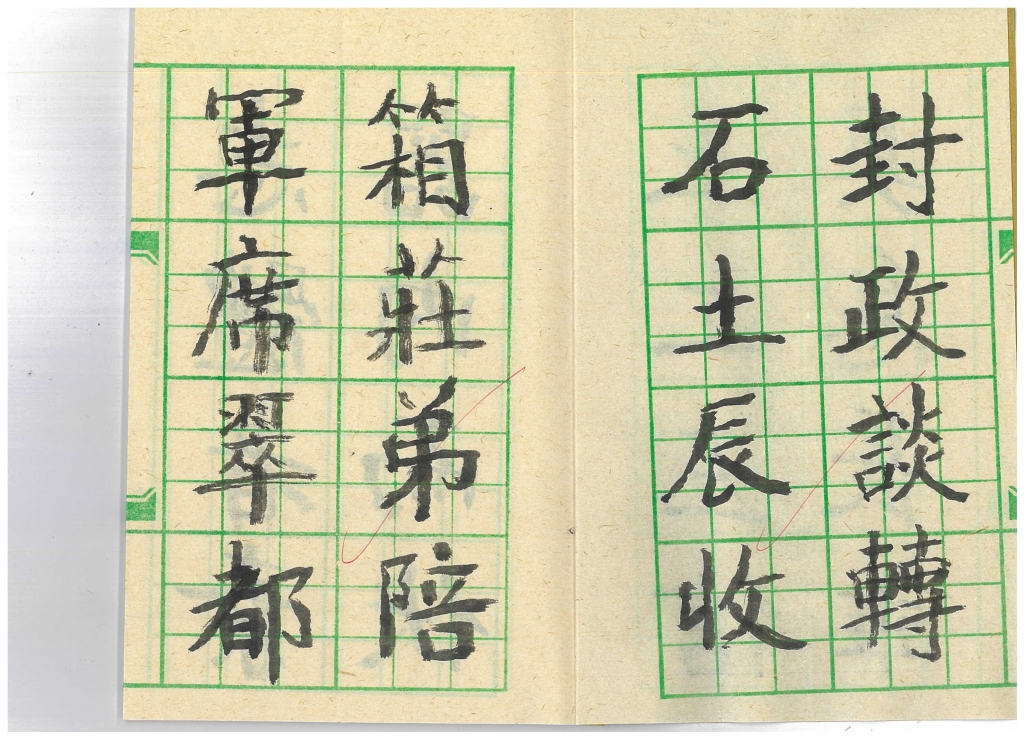 封政談轉
石土辰收
箱莊弟陪
軍席翠都